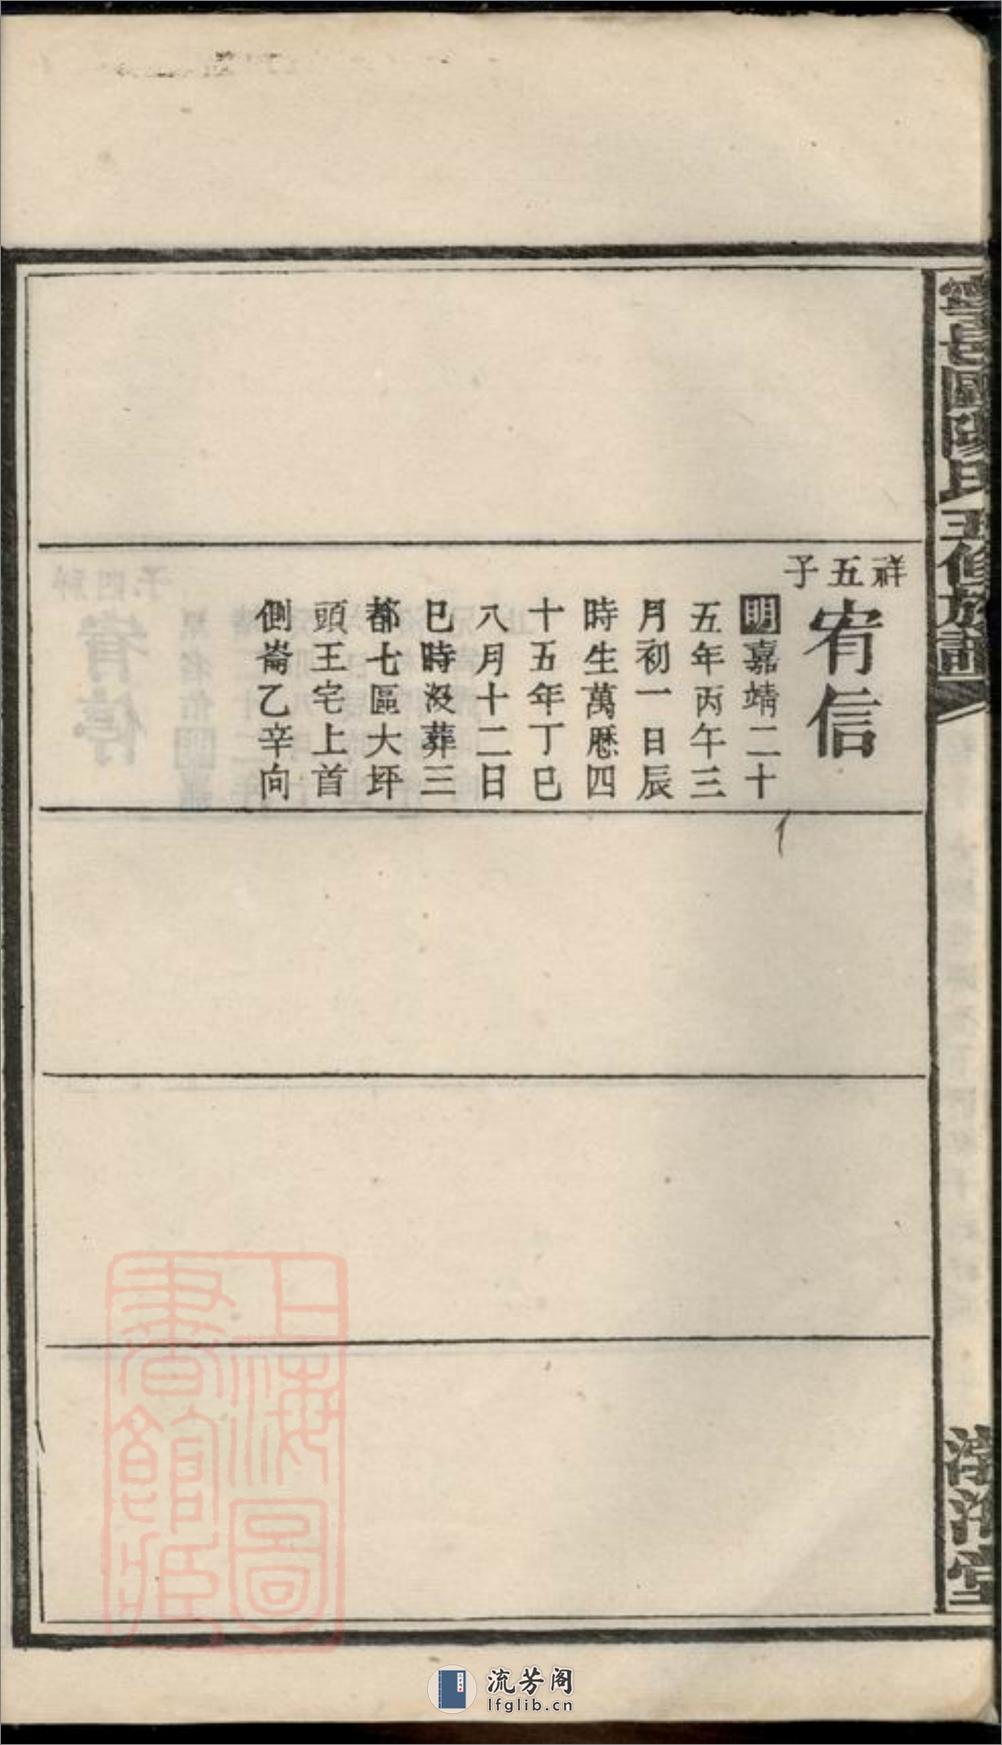 歐陽氏五修族譜
祥五子
宥信
明嘉靖二十
五年丙午三
月初一日辰
時生萬厯四
十五年丁巳
八月十二日
巳時殁葬三
都七區大坪
頭王宅上首
側崙乙辛向
上海圖
書館藏
流芳阁
lfglib.cn